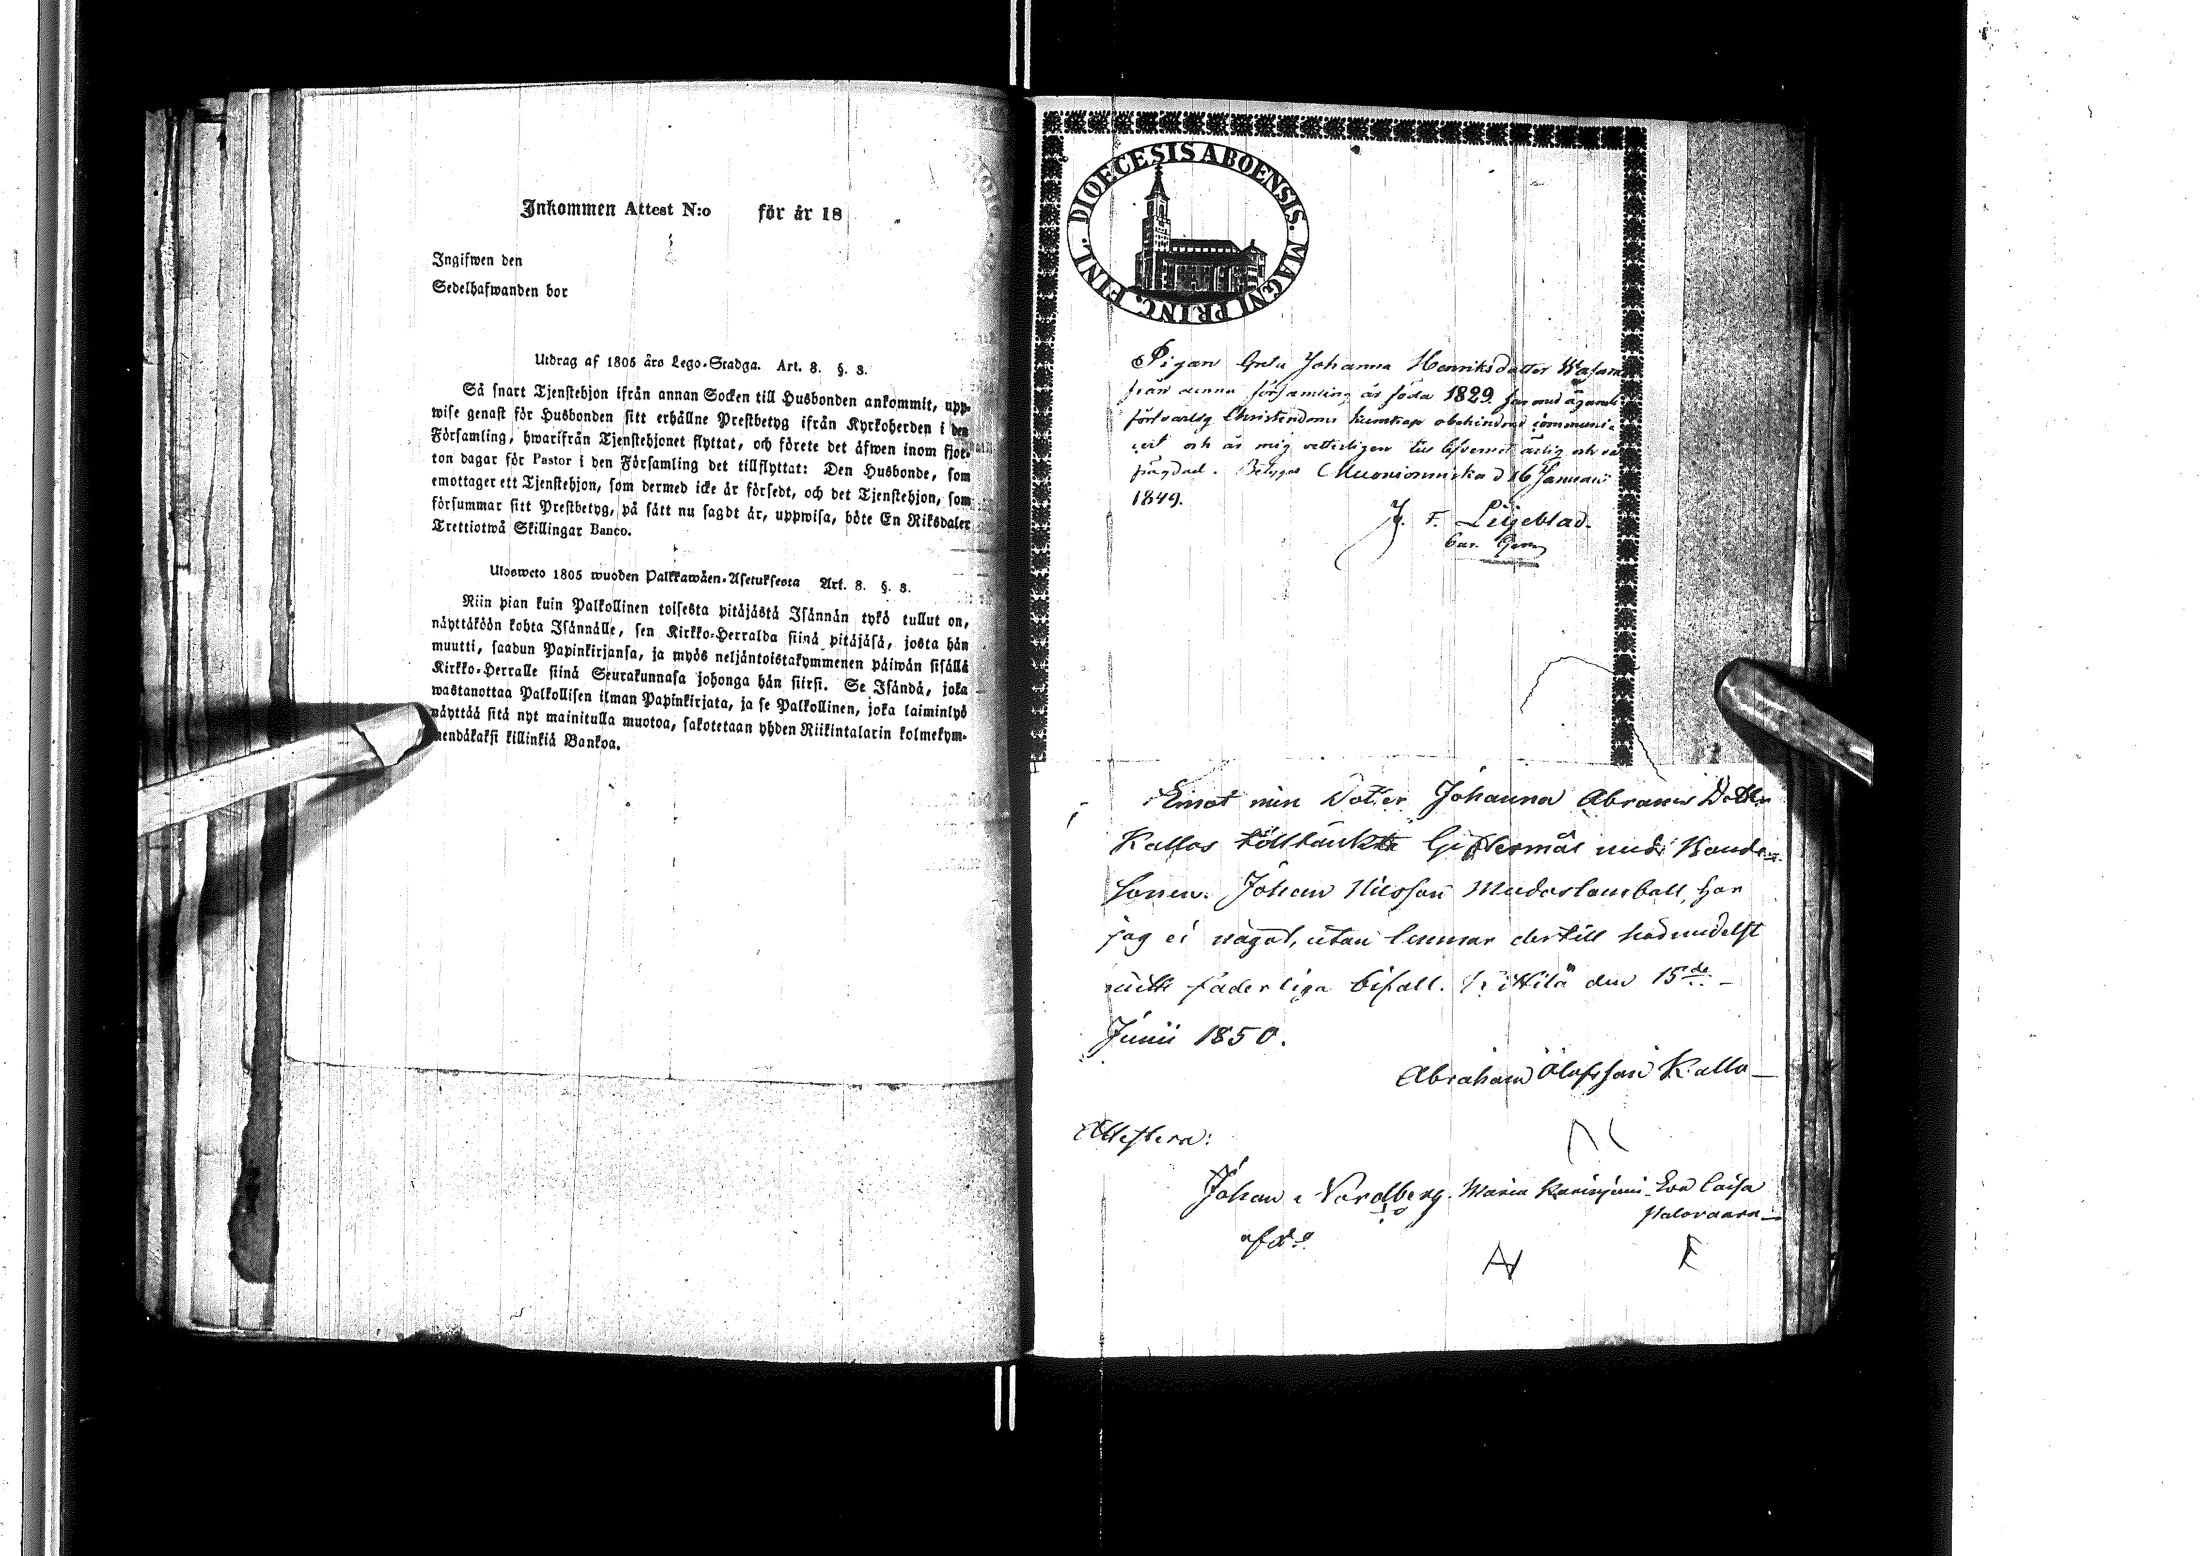 Inkommen Attest N:o för år 18
Ingifwen den
Sedelhafwanden bor
Utdrag af 1805 års Lego-Stadga. Art. 8. §. 8.
Så snart Tjenstehjon ifrån annan Socken till Husbonden ankommit, upp-
wise genast för Husbonden sitt erhållne Prestbetyg ifrån Kyrkoherden i den
Församling, hwarifrån Tjenstehjonet flyttat, och förete det äfwen inom fjor-
ton dagar för Pastor i den Församling det tillflyttat: Den Husbonde, som
emottager ett Tjenstehjon, som dermed icke är försedt, och det Tjenstehjon, som
försummar sitt Prestbetyg, på sätt nu sagdt är, uppwisa, böte En Riksdaler
Trettiotwå Skillingar Banco.
Ulosweto 1805 wuoden Palkkawäen-Asetuksesta Art. 8. §. 8.
Niin pian kuin Palkollinen toisesta pitäjästä Isännän tykö tullut on,
näyttäköön kohta Isännälle, sen Kirkko-Herralda siinä pitäjäsä, josta hän
muutti, saadun Papinkirjansa, ja myös neljäntoistakymmenen päiwän sisällä
Kirkko-Herralle siinä Seurakunnasa johonga hän siirsi. Se Isändä, joka
wastanottaa Palkollisen ilman Papinkirjata, ja se Palkollinen, joka laiminlyö
näyttää sitä nyt mainitulla muotoa, sakotetaan yhden Riikintalarin kolmekym-
mendäkaksi killinkiä Bankoa.
DIOECESIS ABOENSIS. MAGNI PRINC. FINL.
Pigan Greta Johanna Henriksdotter
från denna församling är föda 1829. har med ägande
försvarlig Christendoms kunskap obehindrad communi-
cert och är mig vetterligen till lefvernet ärlig och
frägdad. Betygas Muonionniska d 16 Januarii
1849.
J. F. Liljeblad.
Emot min Dotter Johanna Abrams Dotter
Kallos tilltänkta Giftermål med Bonde-
sonen Johan Nilsson Mudoslomball, har
jag ei något, utan lemnar dertill härmedelst
mitt faderliga bifall. Kittilä den 15de
Junii 1850.
Abraham Olofsson Kallo
Attestera:
Johan Nordberg. Maria Eva Caisa
Palovaara